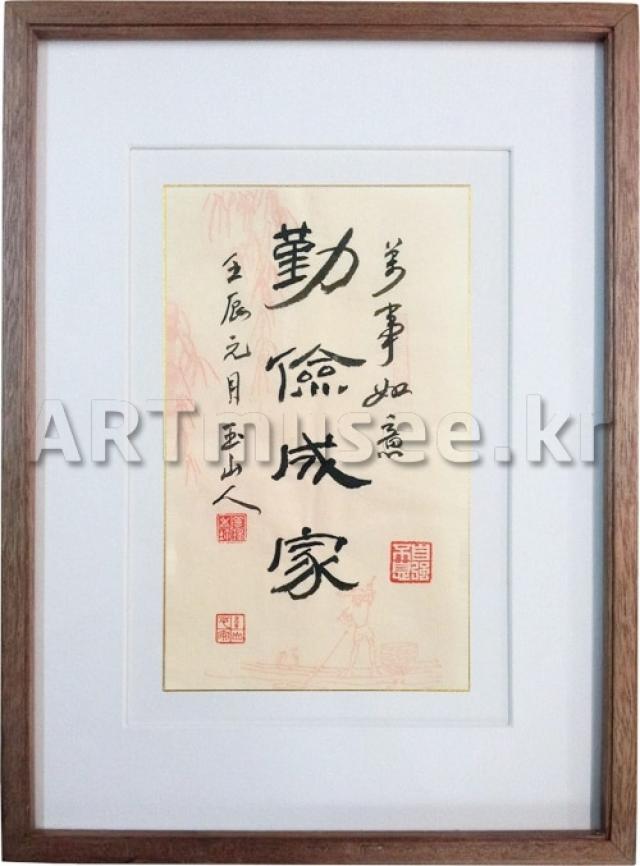 萬事如意
勤儉成家
壬辰元月 玉山人
自強不息
ARTmusee.kr